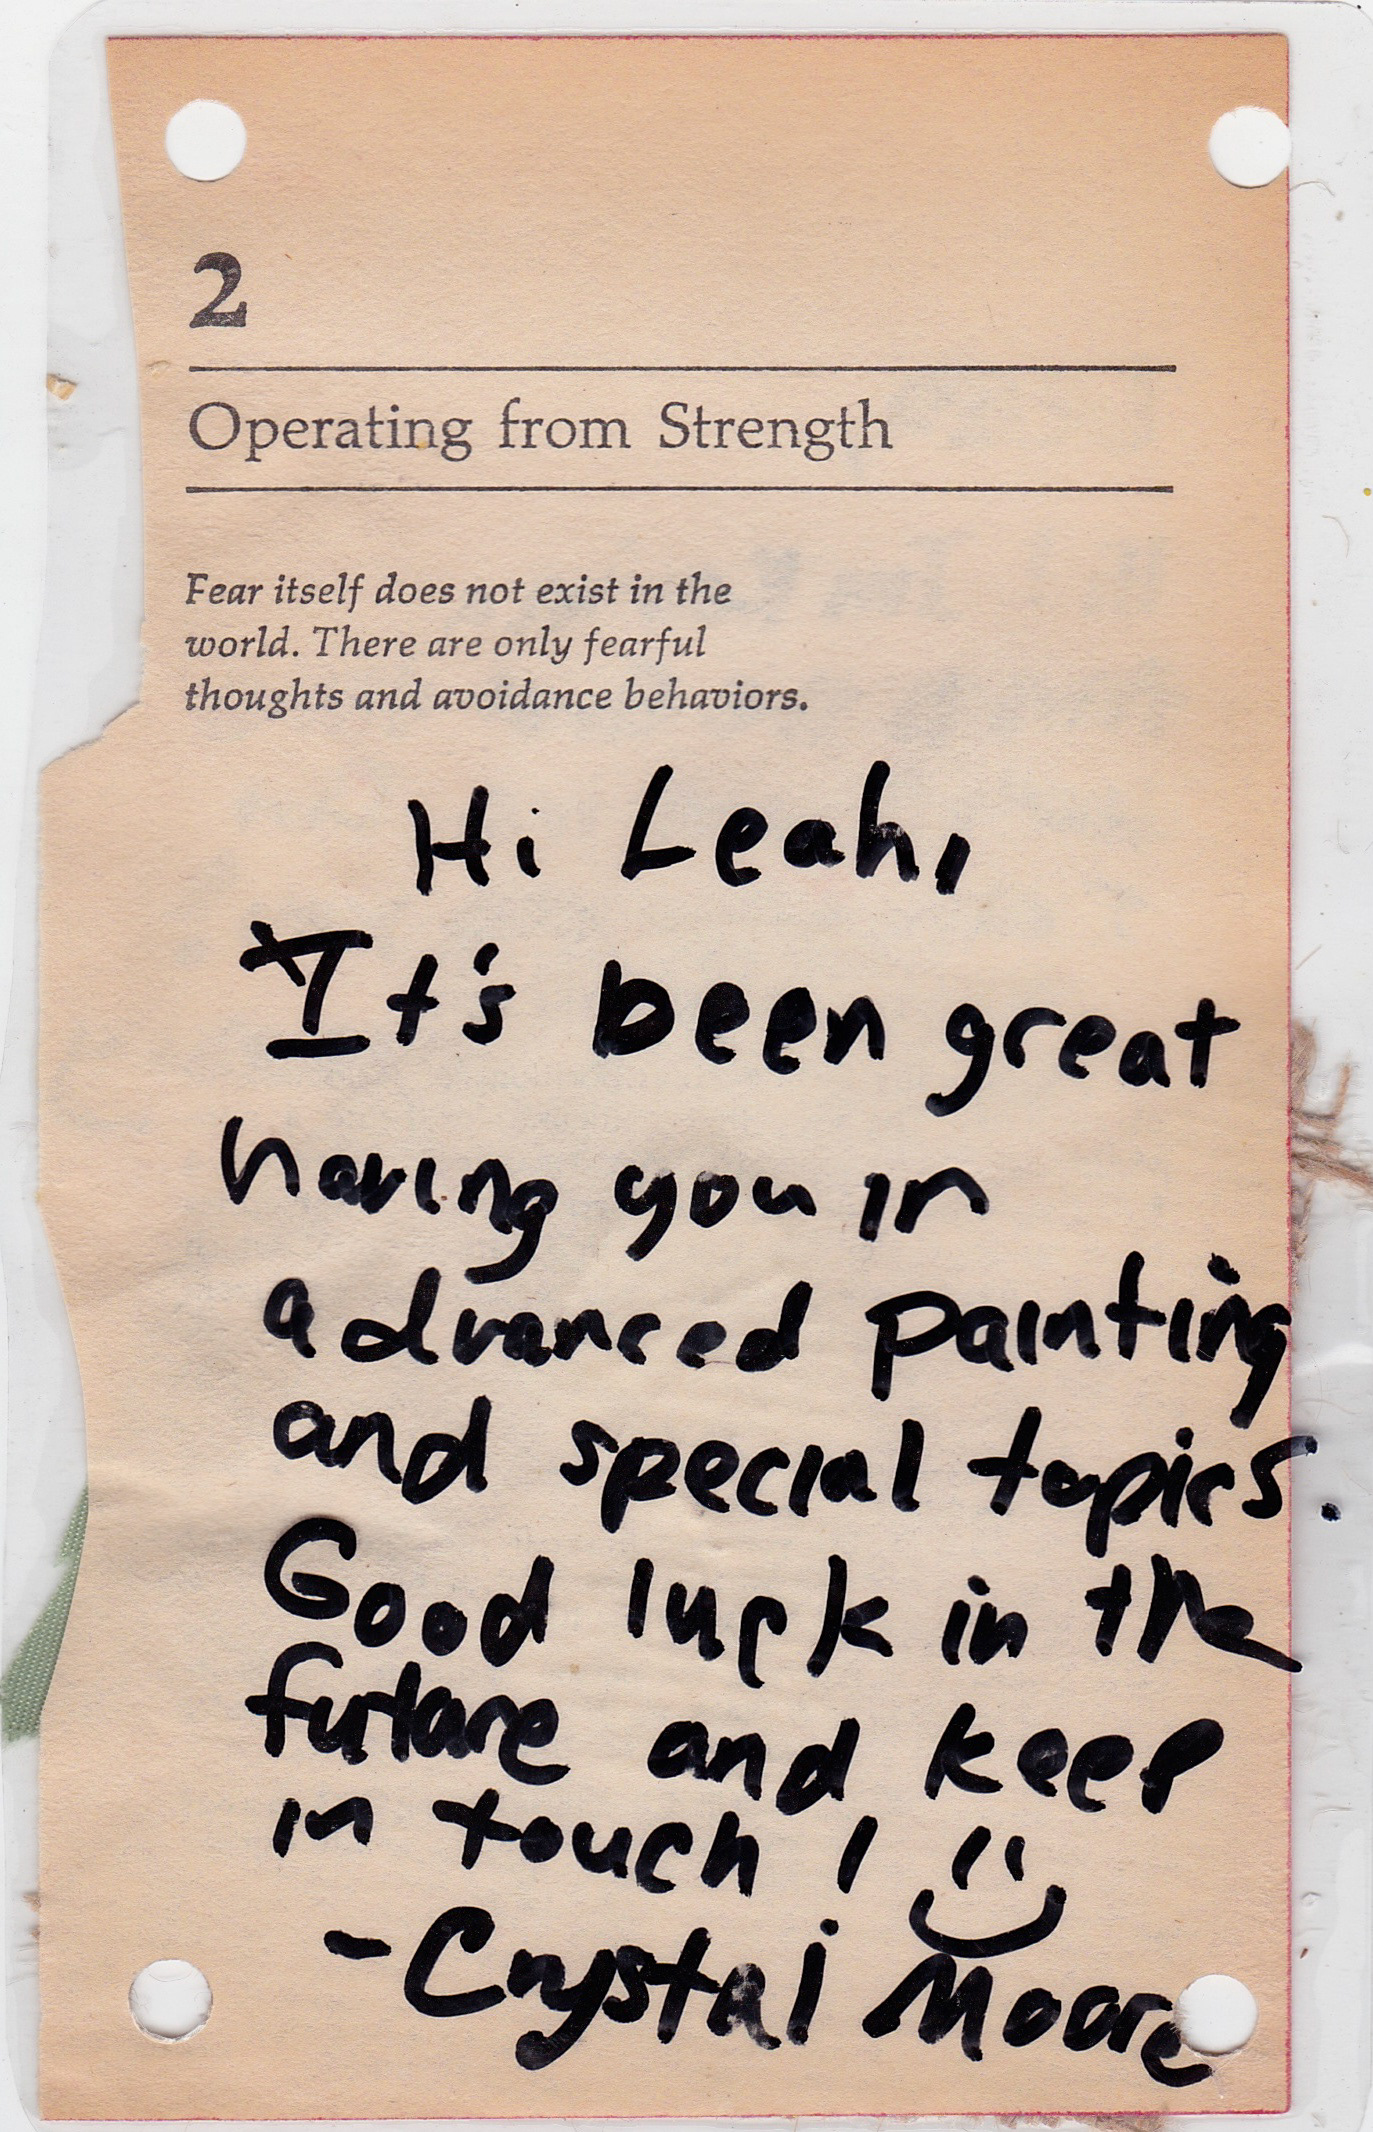 2
Operating from Strength
Fear itself does not exist in the
world. There are only fearful
thoughts and avoidance behaviors.
Hi Leah,
It's been great
having you in
advanced painting
and special topics.
Good luck in the
future and keep
in touch!
-Crystal Moore